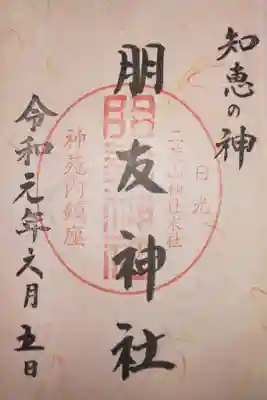 知恵の神
日光
二荒山神社末社
朋友神社
神苑内鎮座
令和元年六月五日